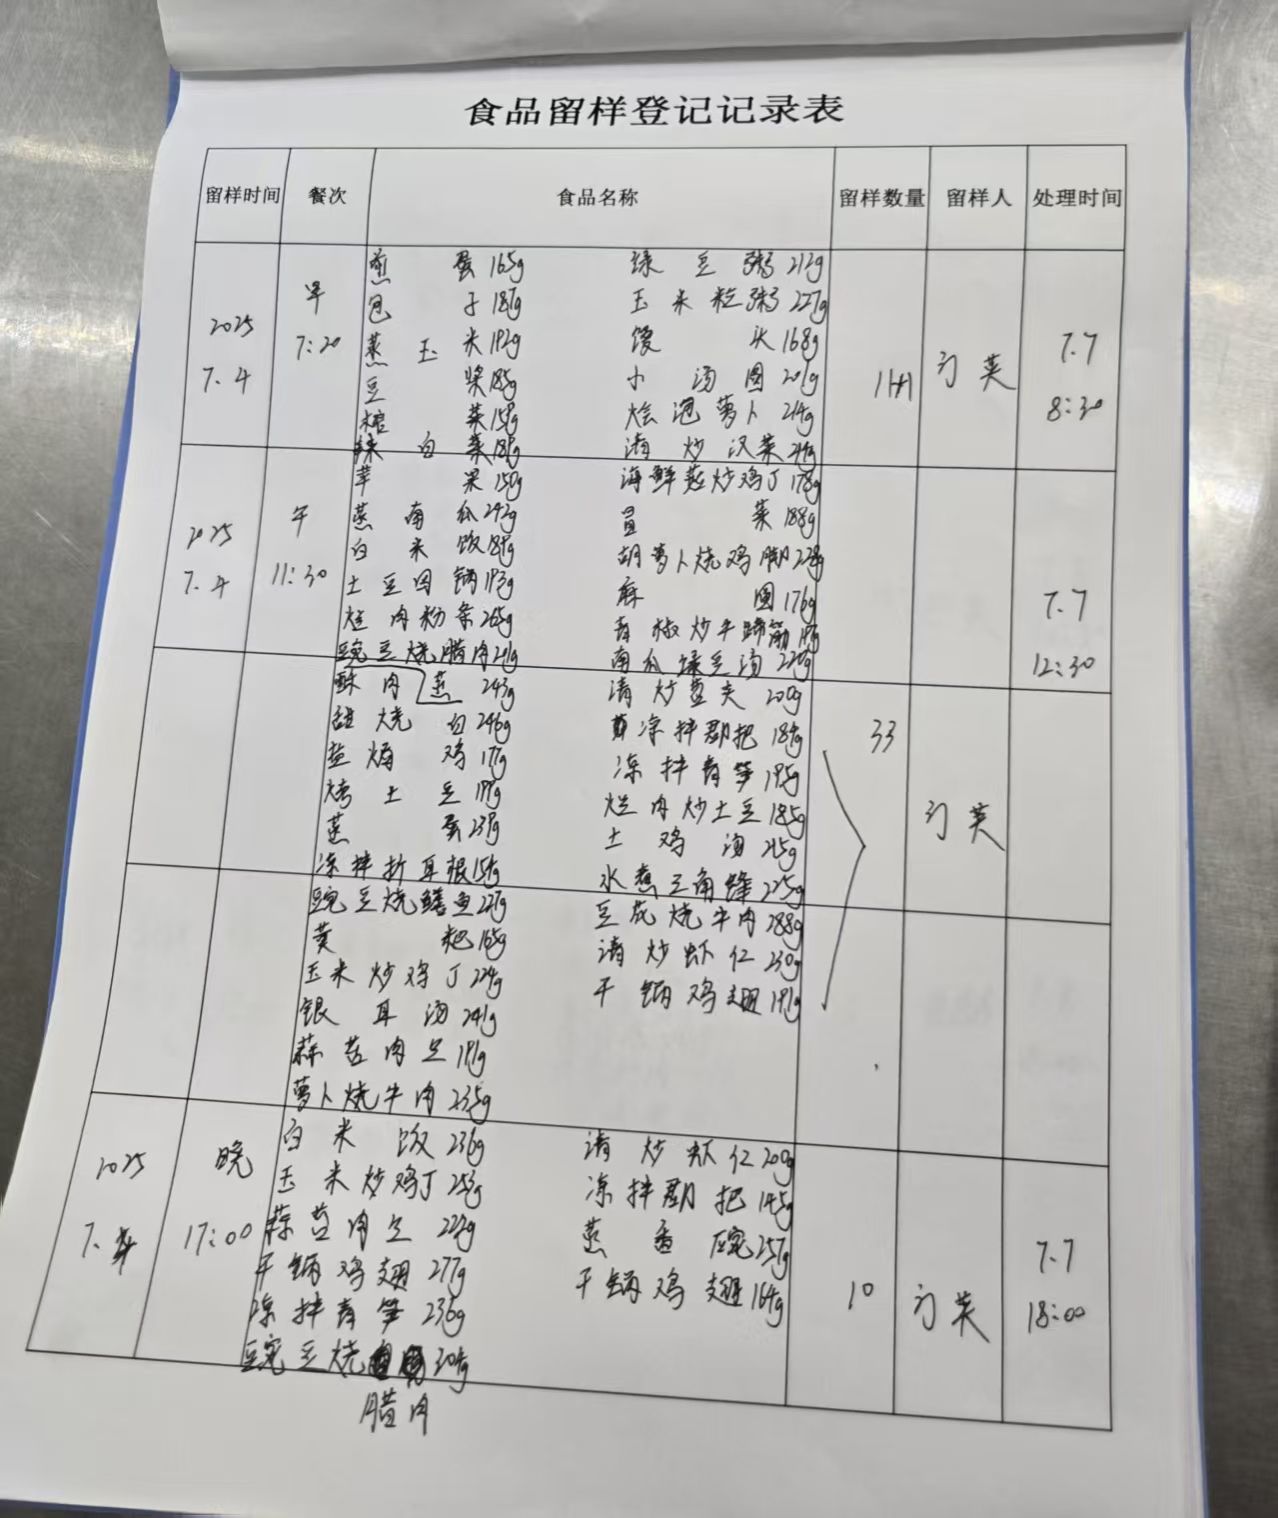 食品留样登记记录表
留样时间 餐次 食品名称 留样数量 留样人 处理时间
2025 7.4 早 7:20
煎蛋165g 绿豆粥212g
包子187g 玉米粒粥227g
蒸玉米192g 馒头168g
豆浆185g 小汤圆201g
榨菜159g 烩泡萝卜214g
辣白菜 清炒汉菜
7.7 8:30
2025 7.4 午 11:30
苹果150g 海鲜菇炒鸡丁178g
蒸南瓜242g 菜188g
白米饭 胡萝卜烧鸡脚
土豆回锅193g 麻圆176g
烂肉粉条265g 青椒炒牛蹄筋
豌豆烧腊肉241g 南瓜绿豆汤
7.7 12:30
酥肉 蒸 243g 清炒 200g
甜烧白246g 凉拌郡把184g
盐焗鸡177g 凉拌青笋195g
烤土豆 烂肉炒土豆185g
蒸蛋 土鸡汤215g
凉拌折耳根154g 水煮三角蜂225g
33
豌豆烧鳝鱼227g 豆花烧牛肉288g
黄粑165g 清炒虾仁230g
玉米炒鸡丁224g 干锅鸡翅191g
银耳汤241g
蒜苔肉丝191g
萝卜烧牛肉235g
2025 7.4 晚 17:00
白米饭236g 清炒虾仁200g
玉米炒鸡丁253g 凉拌郡把145g
蒜苔肉丝222g 蒸蛋 257g
干锅鸡翅277g 干锅鸡翅164g
凉拌青笋236g
豌豆烧 304g
腊肉
10
7.7 18:00